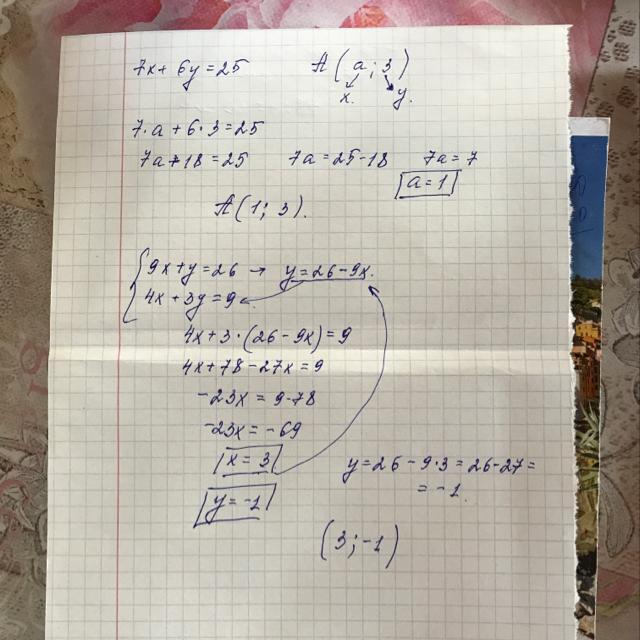 7x + 6y = 25 A(a; 3)
x. y.
7·a + 6·3 = 25
7a + 18 = 25 7a = 25 - 18 7a = 7
a = 1
A(1; 3).
9x + y = 26 → y = 26 - 9x.
4x + 3y = 9
4x + 3·(26 - 9x) = 9
4x + 78 - 27x = 9
-23x = 9 - 78
-23x = -69
x = 3 y = 26 - 9·3 = 26 - 27 =
y = -1 = -1.
(3; -1)